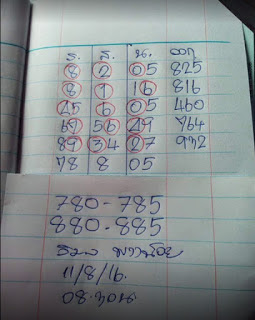 ธ. ธ. น. ออก
8 2 05 825
8 1 16 816
25 6 05 460
69 56 29 764
89 34 27 932
78 8 05
780-785
880-885
11/8/16.